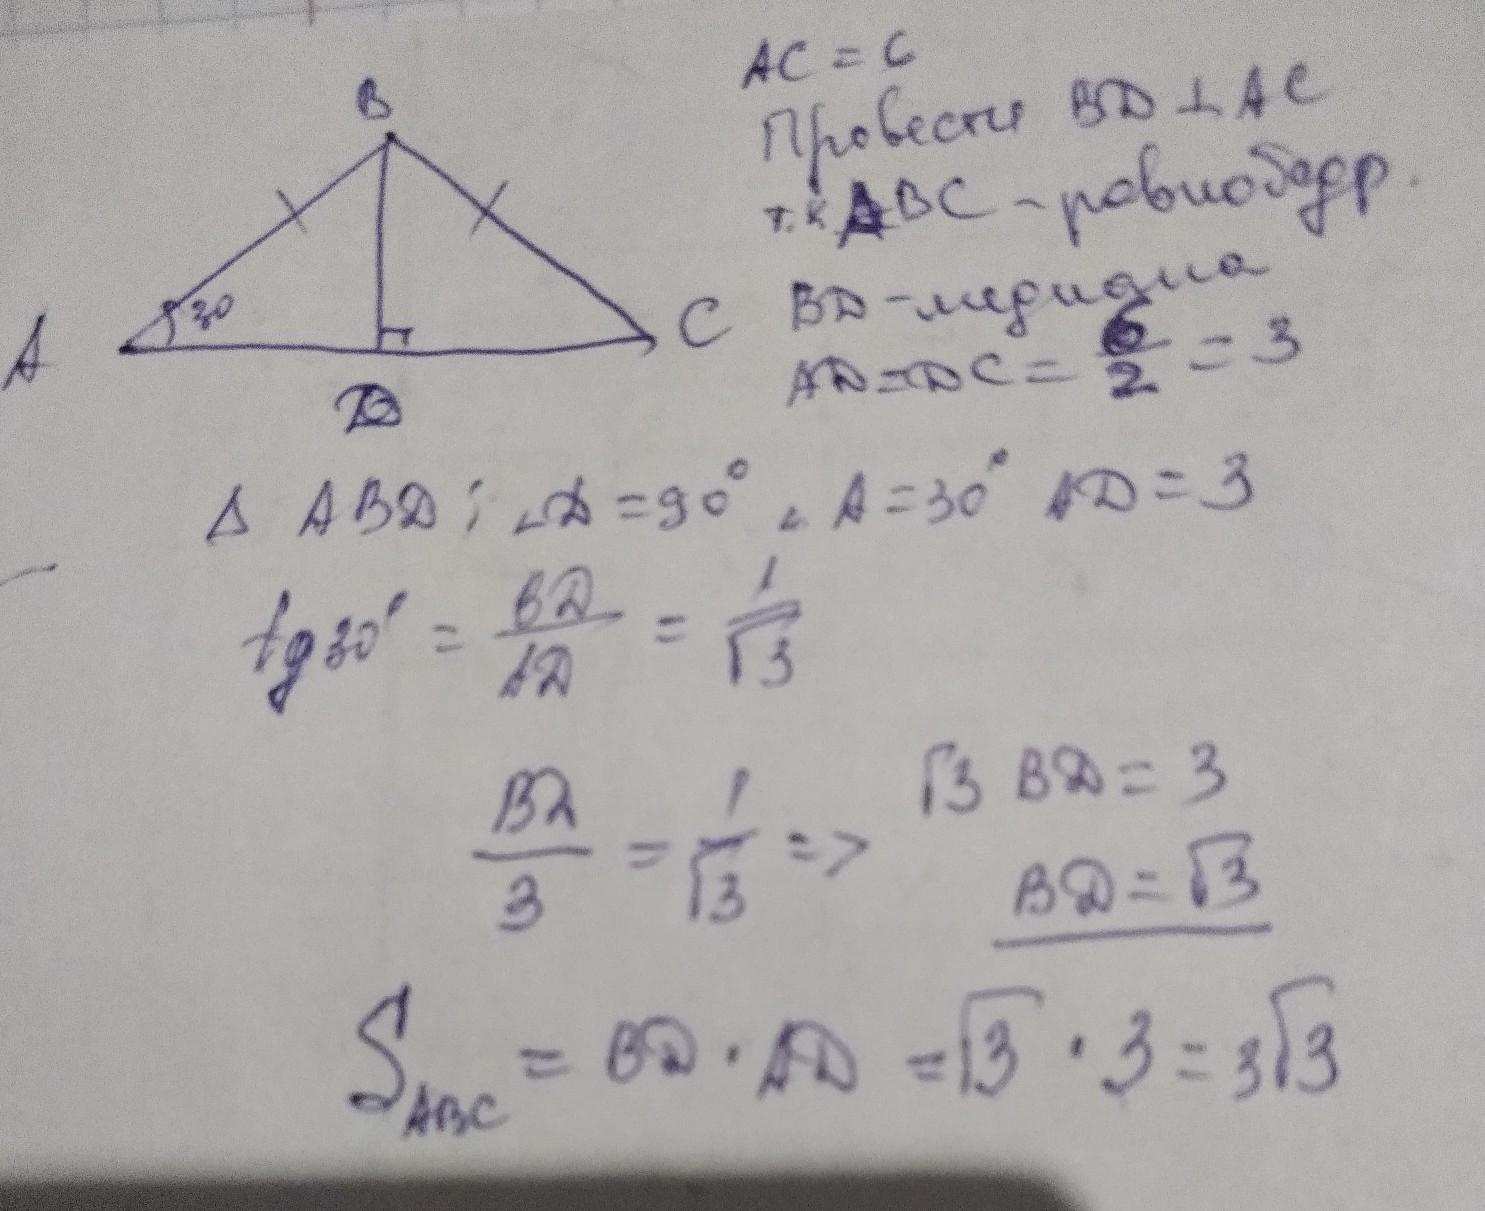 AC = 6
Провести BD ⊥ AC
т.к ABC - равнобедр.
BD - медиана
AD = DC = 6/2 = 3
B
30
A
C
D
Δ ABD; ∠D = 90° ∠A = 30° AD = 3
tg 30° = BD/AD = 1/√3
BD/3 = 1/√3 => √3 BD = 3
BD = √3
S ABC = BD · AD = √3 · 3 = 3√3